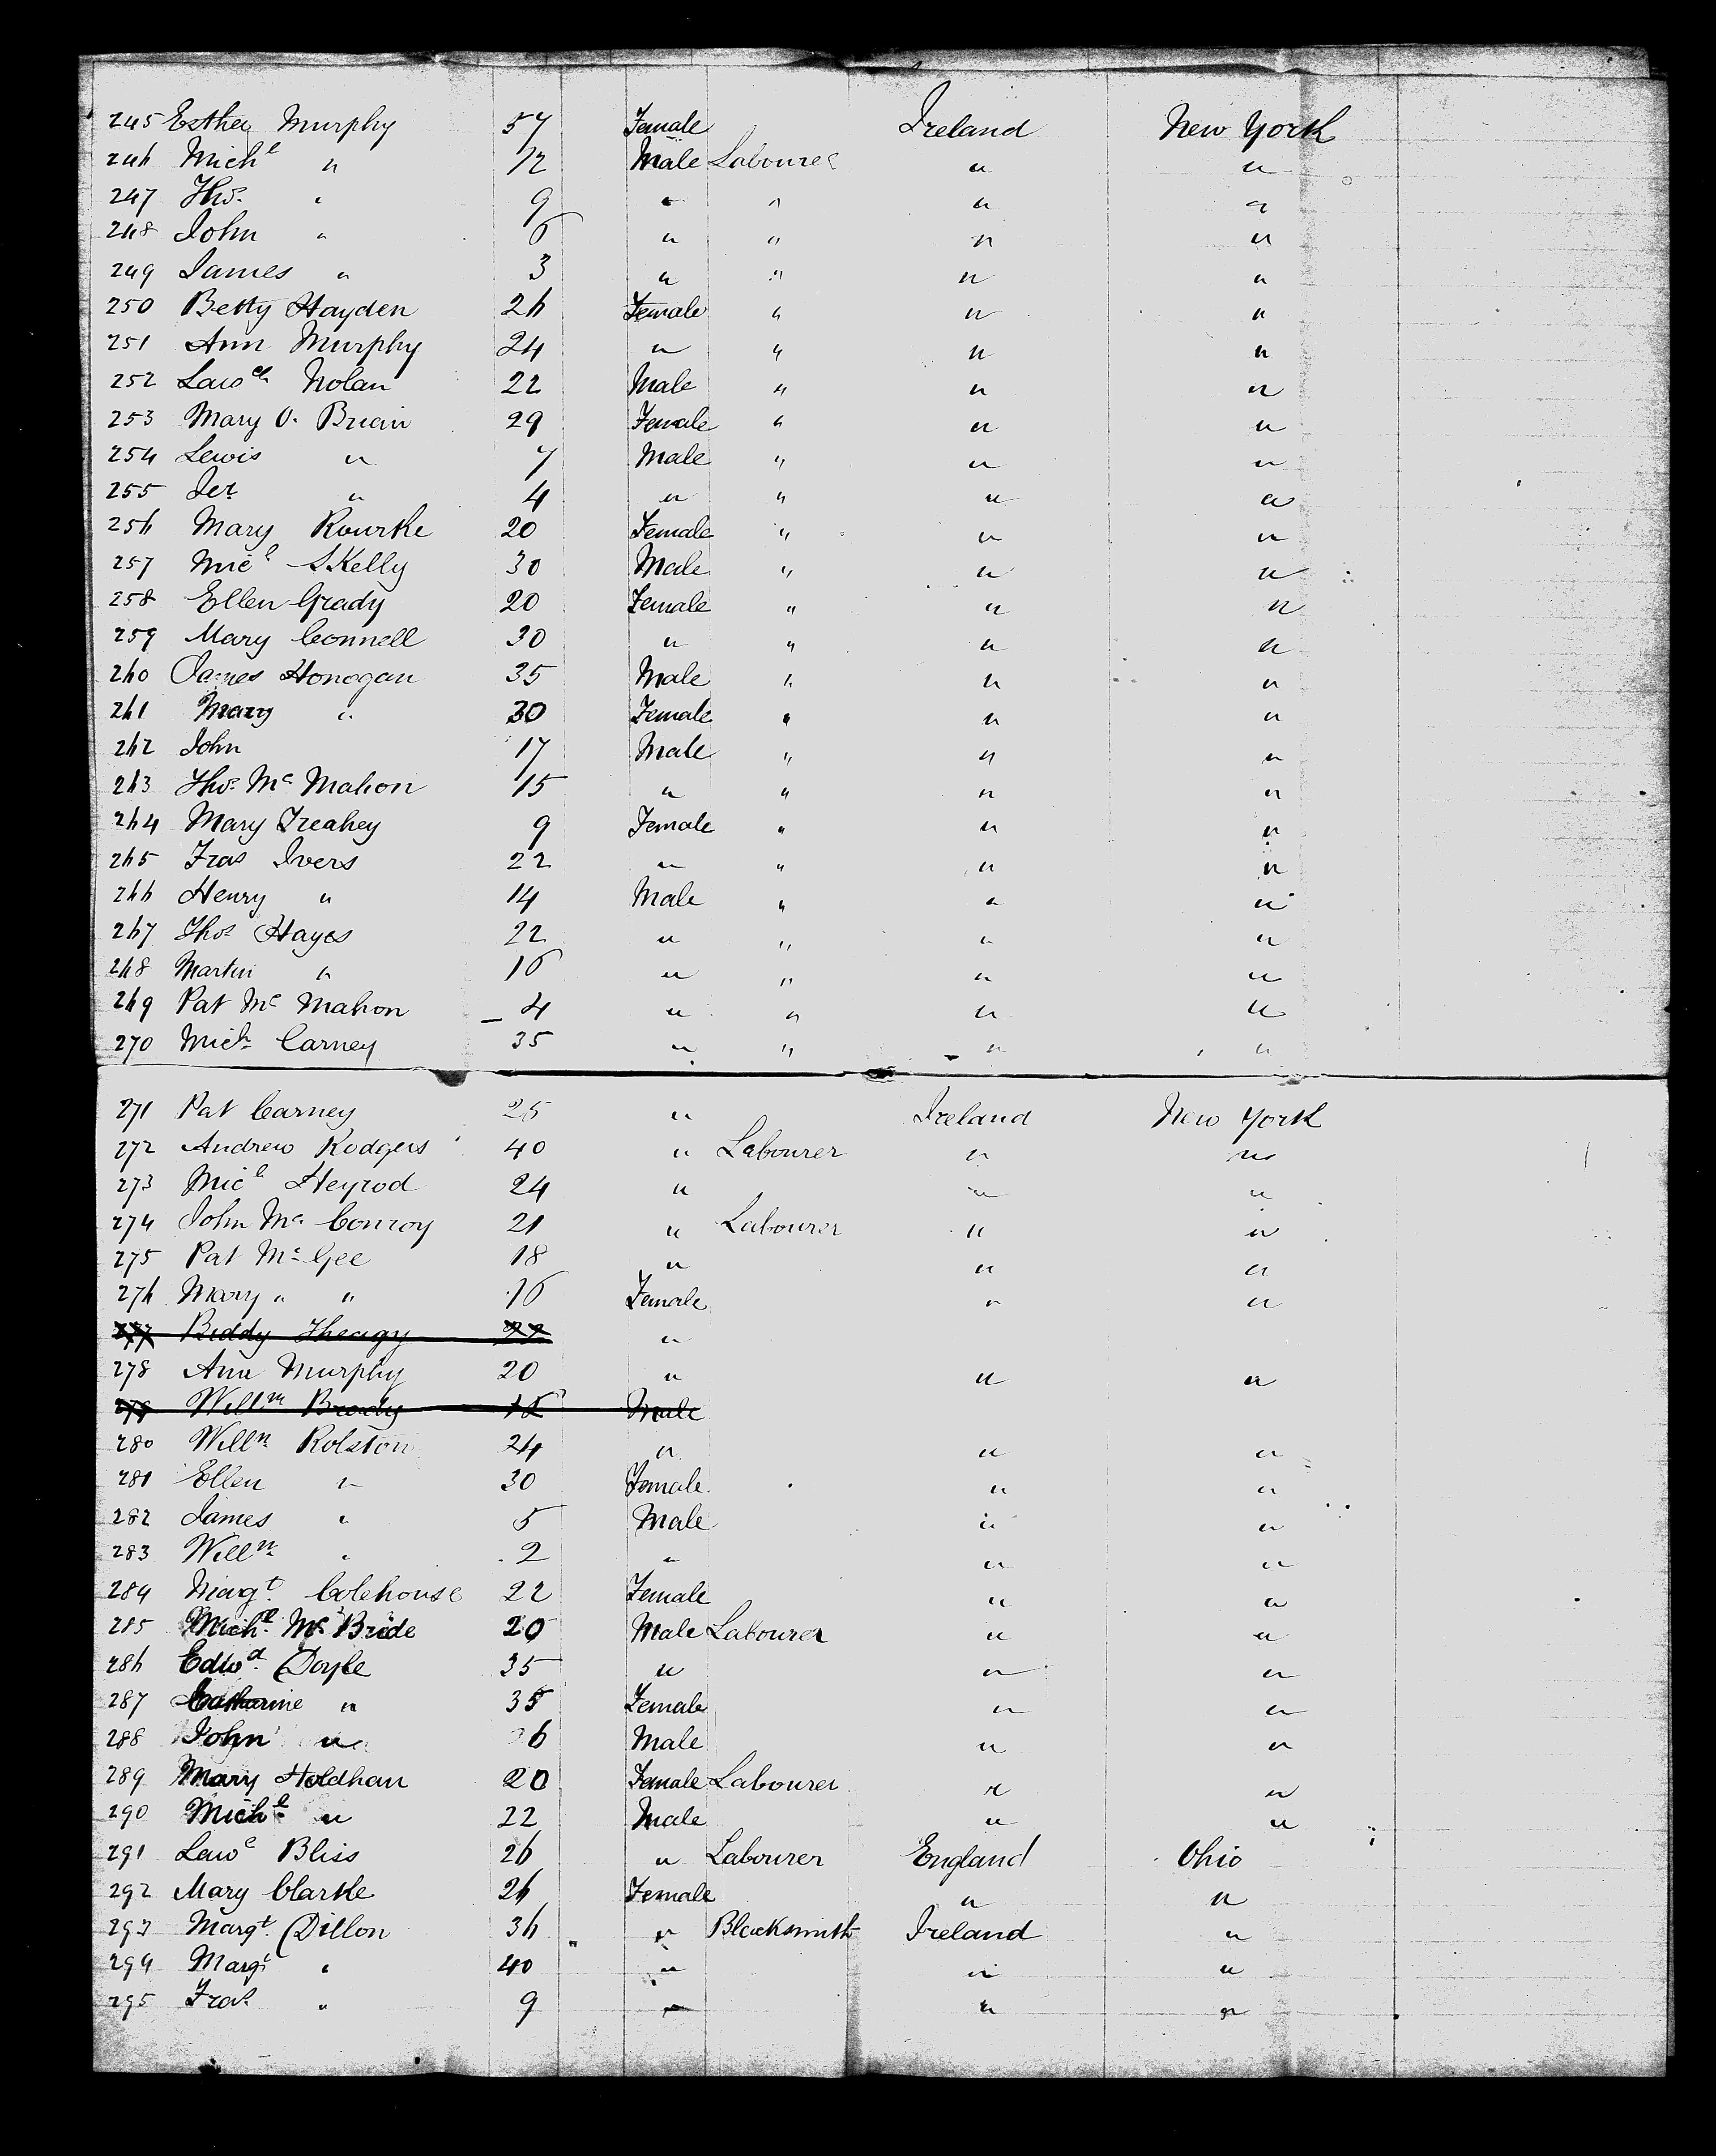 245 Esther Murphy 57 Female Ireland New York
246 Michl " 12 Male Labourer " "
247 Thos. " 9 " " " "
248 John " 6 " " " "
249 James " 3 " " " "
250 Betty Hayden 26 Female " " "
251 Ann Murphy 24 " " " "
252 Lawce Nolan 22 Male " " "
253 Mary O. Briain 29 Female " " "
254 Lewis " 7 Male " " "
255 Jer " 4 " " " "
256 Mary Rourke 20 Female " " "
257 Micl S Kelly 30 Male " " "
258 Ellen Grady 20 Female " " "
259 Mary Connell 30 " " " "
260 James Honogan 35 Male " " "
261 Mary " 30 Female " " "
262 John 17 Male " " "
263 Thos. Mc Mahon 15 " " " "
264 Mary Treahey 9 Female " " "
265 Fras Ivers 22 " " " "
266 Henry " 14 Male " " "
267 Thos Hayes 22 " " " "
268 Martin " 16 " " " "
269 Pat Mc Mahon 4 " " " "
270 Mich Carney 35 " " " "
271 Pat Carney 25 " Ireland New York
272 Andrew Rodgers 40 " Labourer " "
273 Micl Heyrod 24 " " "
274 John Mc Conroy 21 " Labourer " "
275 Pat Mc Gee 18 " " "
276 Mary " " 16 Female " "
277 Biddy Theagy 22 "
278 Ann Murphy 20 " " "
279 Willm Brody 18 Male
280 Willm Rolston 24 " " "
281 Ellen " 30 Female " "
282 James " 5 Male " "
283 Willm " 2 " " "
284 Margt. Colehouse 22 Female " "
285 Michl Mc Bride 20 Male Labourer " "
286 Edwd. Doyle 35 " " "
287 Catharine " 35 Female " "
288 John " 6 Male " "
289 Mary Holdhan 20 Female Labourer " "
290 Michl " 22 Male " "
291 Lawe Bliss 26 " Labourer England Ohio
292 Mary Clarke 26 Female " "
293 Margt. Dillon 36 " Blacksmith Ireland "
294 Margt " 40 " " "
295 Fras " 9 " " "